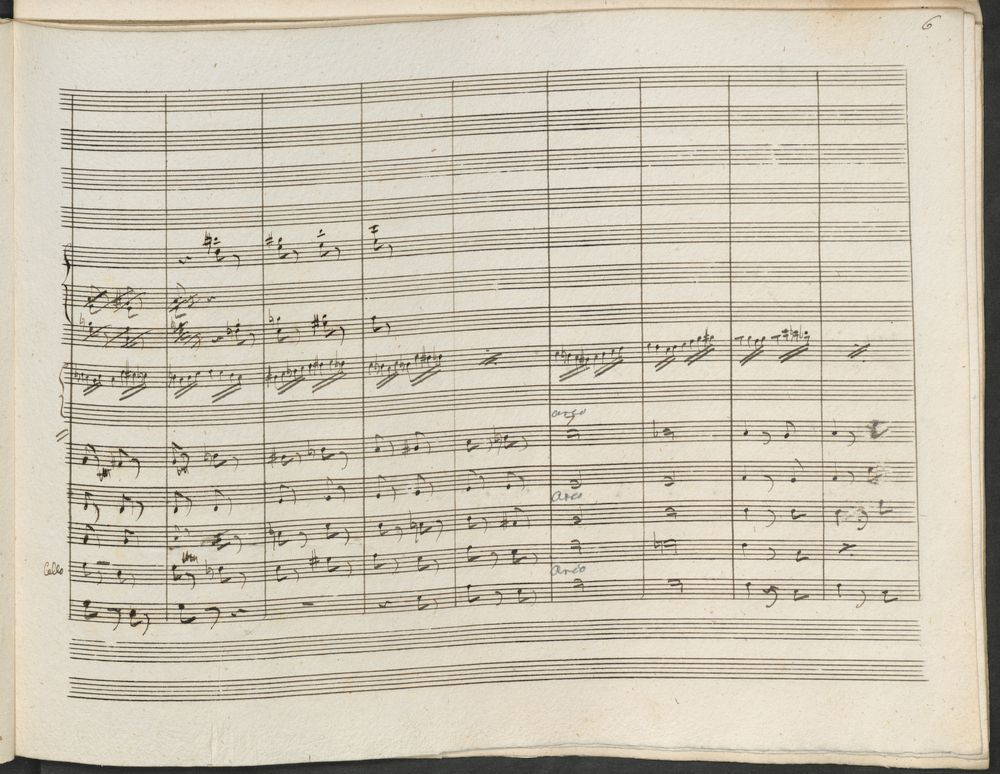 6
arco
arco
Cello
arco